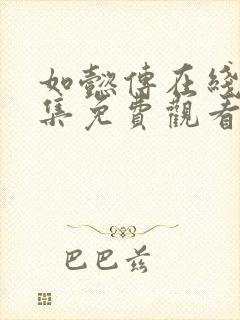 如懿傳在綫
集免費觀看
巴巴兹